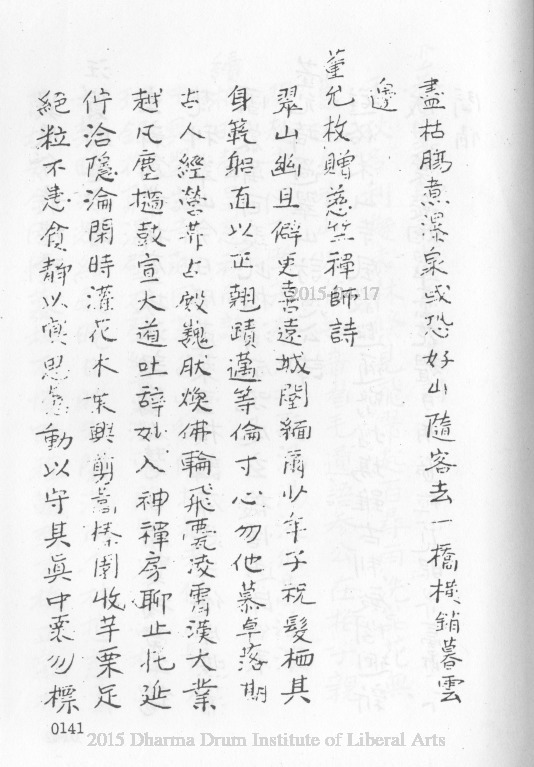 盡枯腸煮澤泉或恐好山隨客去一橋橫銷暮雲
邊
董允枚贈慈竺禪師詩
翠山幽且僻更喜遠城闉緬甭少年子祝髮栖其
身範躬直以正翹蹟邁等倫寸心勿他慕卓落期
古人經營莽占殿巍肰煥佛輪飛甍凌霄漢大業
越凡塵搥鼓宣大道吐辭妙入神禪房聊止托延
佇洽隱淪閑時灌花木 興剪蒿榛園收芋栗足
絕粒不患貧靜以寘思 動以守其眞中裏勿標
2015-04-17
0141
2015 Dharma Drum Institute of Liberal Arts